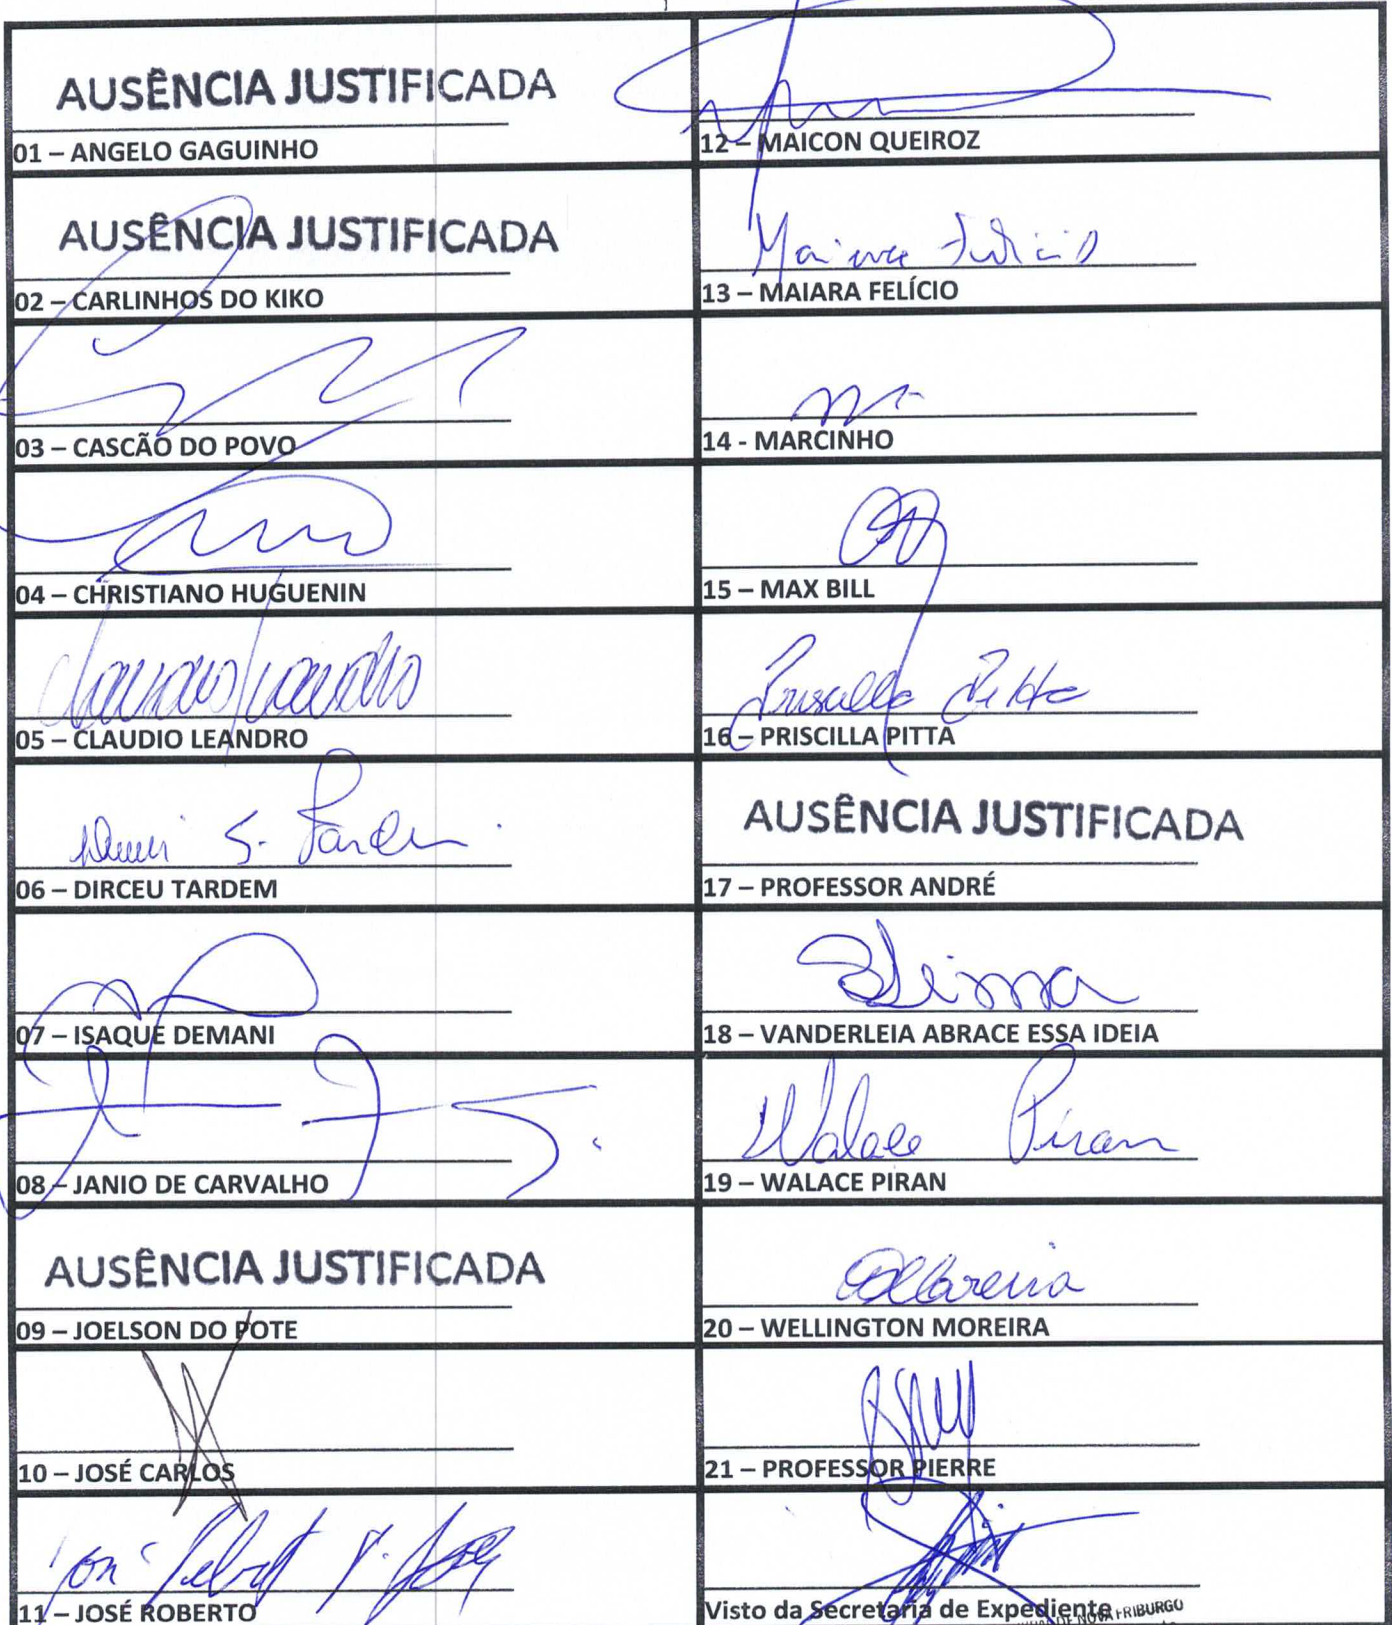 AUSÊNCIA JUSTIFICADA
01 – ANGELO GAGUINHO
AUSÊNCIA JUSTIFICADA
02 – CARLINHOS DO KIKO
03 – CASCÃO DO POVO
04 – CHRISTIANO HUGUENIN
05 – CLAUDIO LEANDRO
06 – DIRCEU TARDEM
07 – ISAQUE DEMANI
08 – JANIO DE CARVALHO
AUSÊNCIA JUSTIFICADA
09 – JOELSON DO POTE
10 – JOSÉ CARLOS
11 – JOSÉ ROBERTO
12 – MAICON QUEIROZ
Maiara Felicio
13 – MAIARA FELÍCIO
14 - MARCINHO
15 – MAX BILL
Priscilla Pitta
16 – PRISCILLA PITTA
AUSÊNCIA JUSTIFICADA
17 – PROFESSOR ANDRÉ
18 – VANDERLEIA ABRACE ESSA IDEIA
Walace Piran
19 – WALACE PIRAN
20 – WELLINGTON MOREIRA
21 – PROFESSOR PIERRE
Visto da Secretaria de Expediente
DE NOVA FRIBURGO